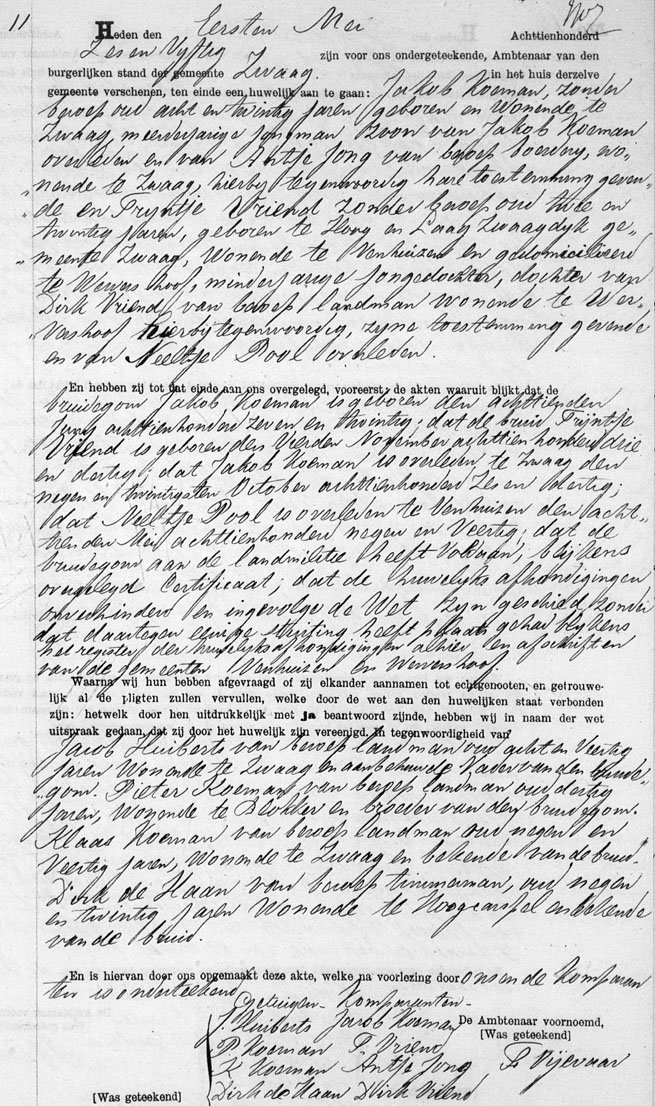 11
Heden den Eersten Mei Achttienhonderd
Zes en Vyftig zijn voor ons ondergeteekende, Ambtenaar van den
burgerlijken stand der gemeente Zwaag. in het huis derzelve
gemeente verschenen, ten einde een huwelijk aan te gaan: Jakob Koeman, zonder
beroep oud acht en twintig jaren geboren en Wonende te
Zwaag, meerderjarige jongman Zoon van Jakob Koeman
overleden en van Antje Jong van beroep boerin, wo-
nende te Zwaag, hierbij tegenwoordig hare toestemming geven-
de en Trijntje Vriend zonder beroep oud twee en
twintig jaren, geboren te Hoog en Laag Zwaagdijk ge-
meente Zwaag, Wonende te Venhuizen en gedomicilieerd
te Wervershoof, minderjarige jongedochter, dochter van
Dirk Vriend, van beroep landman wonende te Wer-
vershoof hierbij tegenwoordig, zyne toestemming gevende
en van Neeltje Pool overleden.
En hebben zij tot dat einde aan ons overgelegd, vooreerst: de akten waaruit blijkt dat de
bruidegom Jakob Koeman is geboren den achttienden
achttienhonderd zeven en twintig; dat de bruid Trijntje
Vriend is geboren den Vierden November achttienhonderd drie
en dertig; dat Jakob Koeman is overleden te Zwaag den
negen en twintigsten October achttienhonderd Zes en dertig;
dat Neeltje Pool is overleden te Venhuizen den acht-
tienden Mei achttienhonderd negen en Veertig; dat de
bruidegom aan de landmilitie heeft voldaan, blijkens
overgelegd Certificaat; dat de huwelyks afkondigingen
onverhinderd en ingevolge de Wet zyn geschied zonder
dat daartegen eenige stuiting heeft plaats gehad blykens
het register der huwelyksafkondigingen alhier en afschriften
van de gemeenten Venhuizen en Wervershoof.
Waarna wij hun hebben afgevraagd of zij elkander aannamen tot echtgenooten, en getrouwe-
lijk al de pligten zullen vervullen, welke door de wet aan den huwelijken staat verbonden
zijn: hetwelk door hen uitdrukkelijk met ja beantwoord zijnde, hebben wij in naam der wet
uitspraak gedaan, dat zij door het huwelijk zijn vereenigd. In tegenwoordigheid van
Jacob Huiberts van beroep landman oud acht en Veertig
jaren Wonende te Zwaag en aanbehuwde Vader van den bruide-
gom. Pieter Koeman van beroep landman oud dertig
jaren, Wonende te Blokker en broeder van den bruidegom.
Klaas Koeman van beroep landman oud negen en
Veertig jaren, Wonende te Zwaag en bekende van de bruid.
Dirk de Haan van beroep timmerman, oud negen
en twintig jaren Wonende te Hoogcarspel en bekende
van de bruid.
En is hiervan door ons opgemaakt deze akte, welke na voorlezing door ons en de Komparan
ten is onderteekend
Getuigen - Komparanten -
J. Huiberts Jacob Koeman De Ambtenaar voornoemd,
[Was geteekend]
P Koeman T. Vriend
K Koeman Antje Jong
[Was geteekend] Dirk de Haan Dirk Vriend